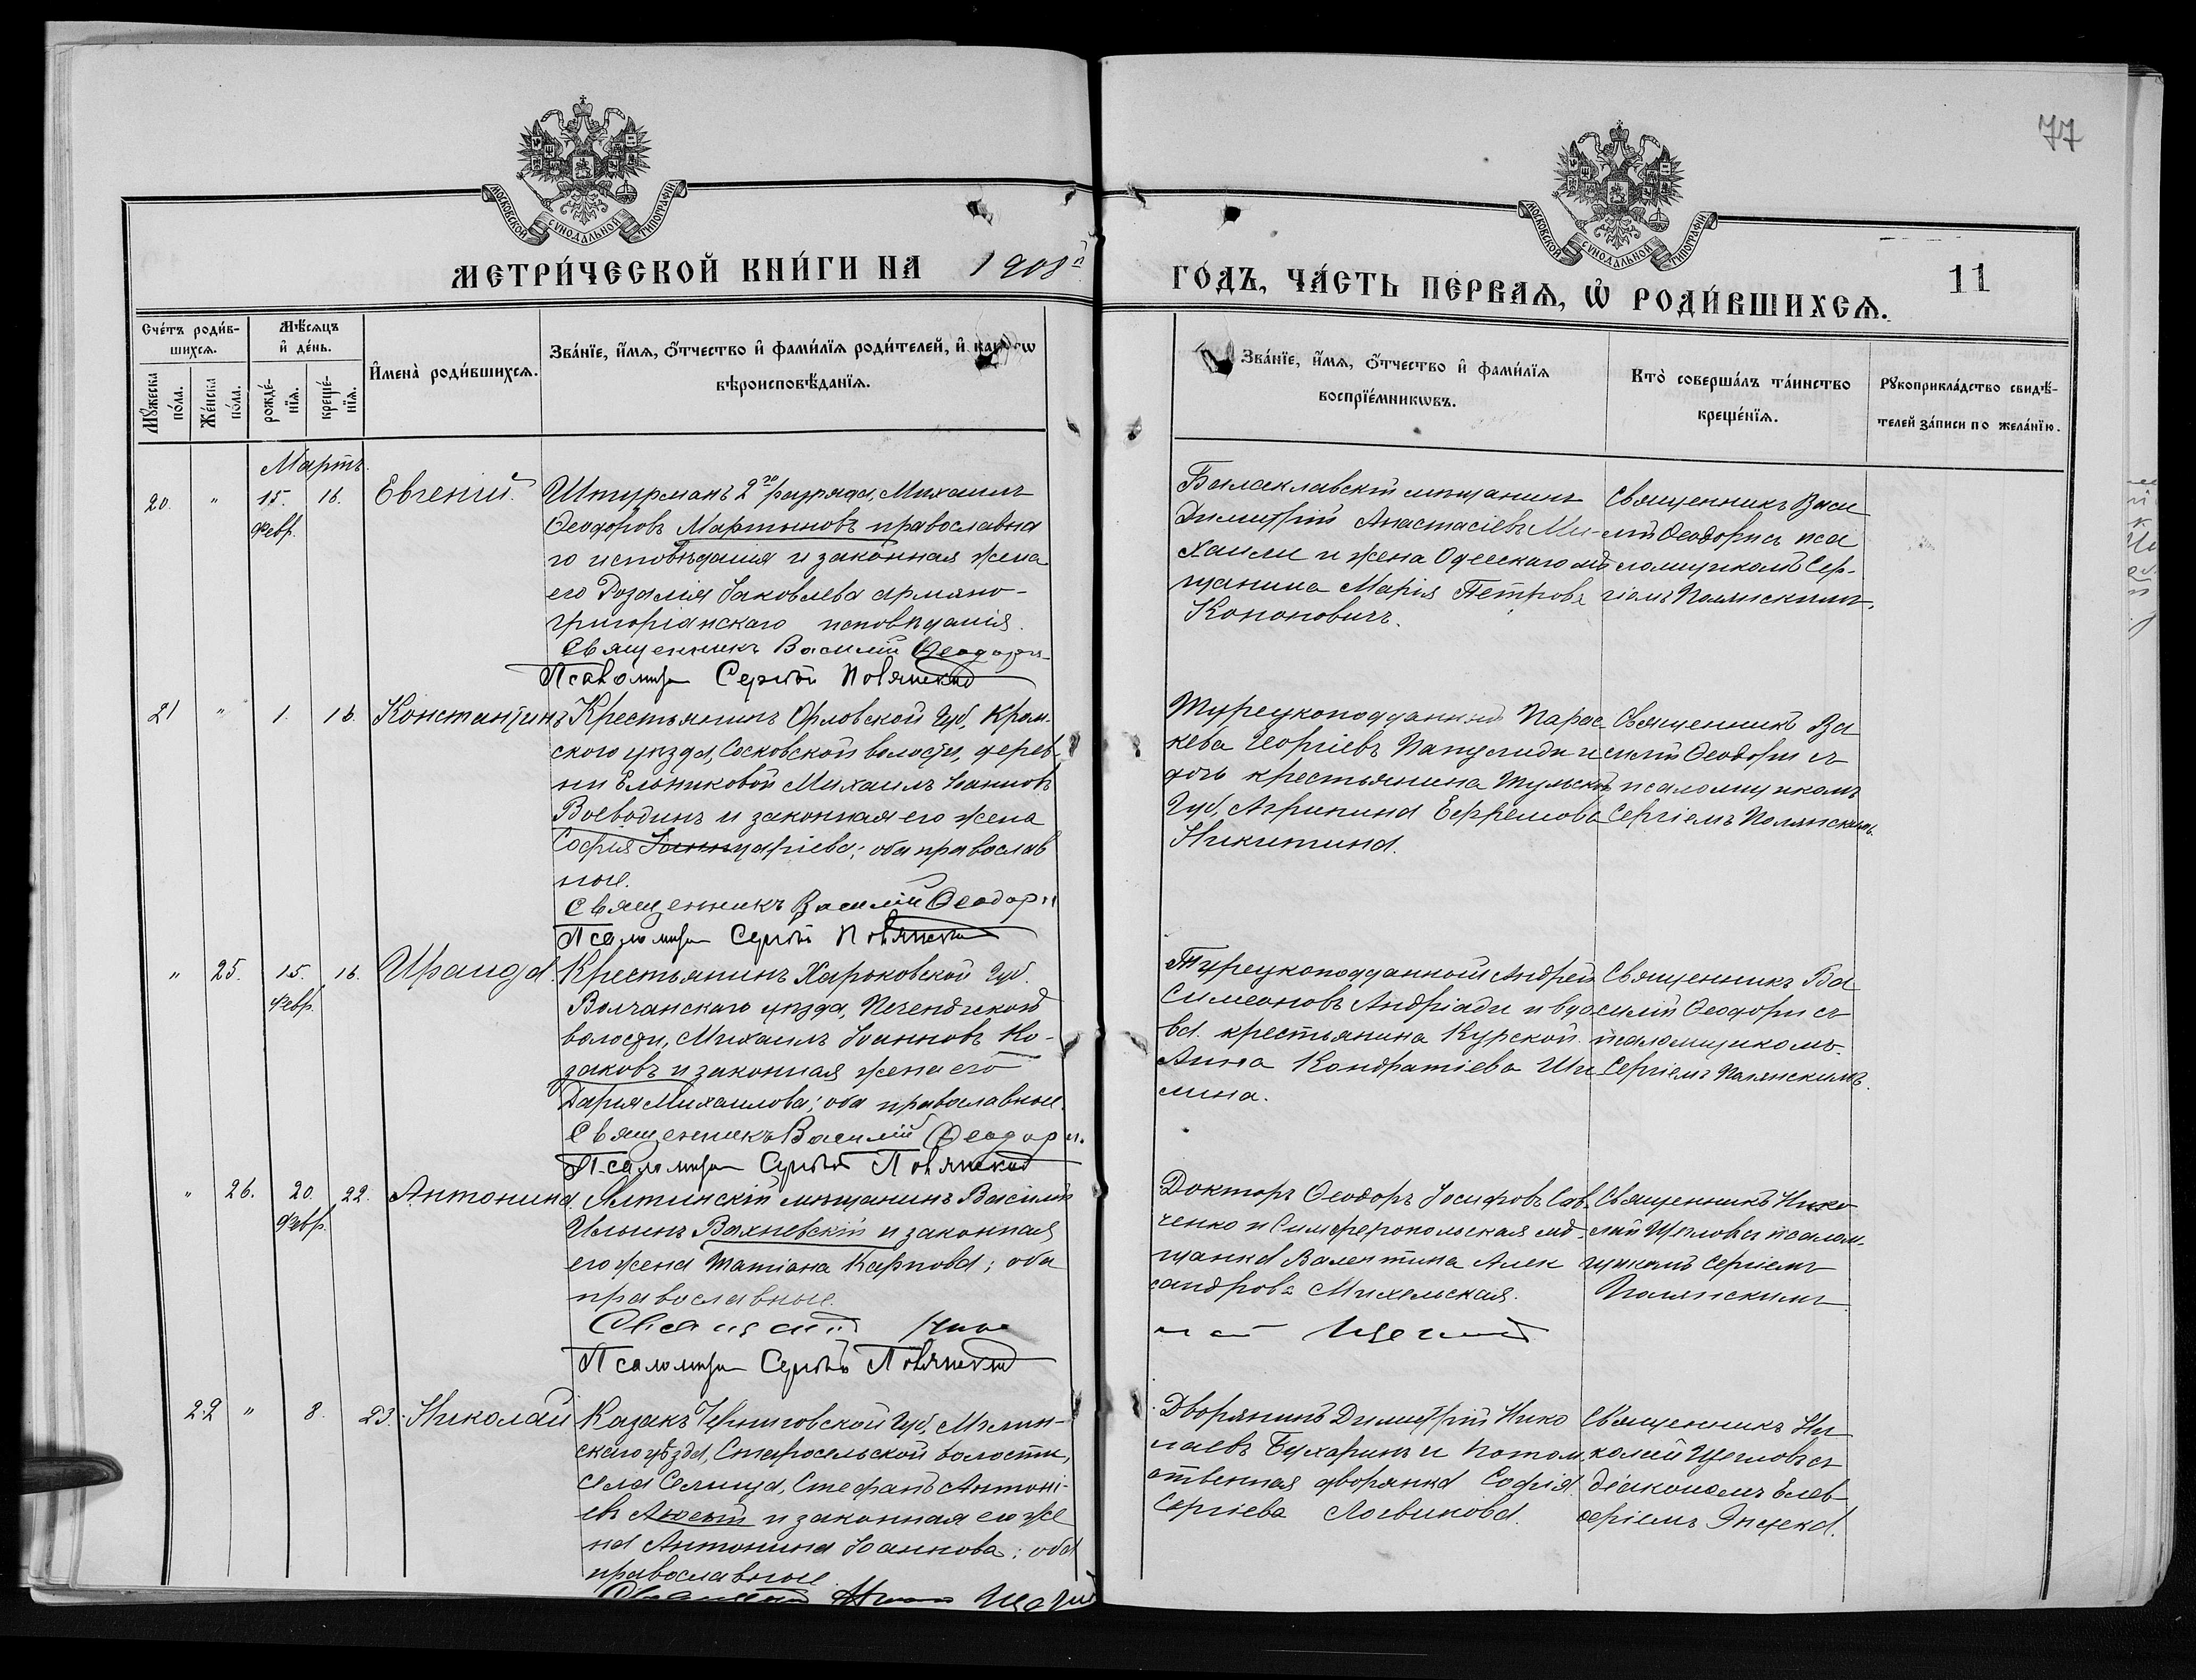 77
МОСКОВСКОЙ СУНОДАЛЬНОЙ ТИПОГРАФІИ
МОСКОВСКОЙ СУНОДАЛЬНОЙ ТИПОГРАФІИ
МЕТРИ́ЧЕСКОЙ КНИ́ГИ НА 1908й
ГО́ДЪ, ЧА́СТЬ ПЕ́РВАѦ, Ѡ҆ РОДИ́ВШИХСѦ.
11
Сче́тъ роди́в-
шихсѧ.
Мꙋ́жеска
по́ла.
Же́нска
по́ла.
Мѣ́сѧцъ
и҆ де́нь.
рожде́-
нїѧ.
креще́-
нїѧ.
И҆мена̀ роди́вшихсѧ.
Зва́нїе, и҆́мѧ, ѻ҆́тчество и҆ фами́лїѧ роди́телей, и҆
вѣроисповѣ́данїѧ.
Зва́нїе, и҆́мѧ, ѻ҆́тчество и҆ фами́лїѧ
воспрїе́мникѡвъ.
Кто̀ соверша́лъ та́инство
креще́нїѧ.
Рꙋкоприкла́дство свидѣ́-
телей за́писи по жела́нїю.
Мартъ.
20. " 15. 16. Евгеній.
Февр.
Штурманъ 2го разряда, Михаилъ
Ѳеодоровъ Мартыновъ православна
го исповѣданія и законная жена
его Розалія Іаковлева армяно-
григоріанскаго исповѣданія.
Священникъ Василій Ѳеодори
Псаломщ Сергѣй Полянскій
Балаклавскій мѣщанинъ
Димитрій Анастасіевъ Ми-
хаили и жена Одесскаго мѣ
щанина Марія Петрова
Кононовичъ.
Священникъ Васи
лій Ѳеодори съ пса
ломщикомъ Сер-
гіемъ Полянскимъ.
21 " 1. 16. Константинъ
Крестьянинъ Орловской Губ, Кром-
скаго уѣзда, Сосковской волости, дерев
ни Ельниковой Михаилъ Іоанновъ
Воеводинъ и законная его жена
София; оба православ
ные.
Священникъ Василій Ѳеодори
Псаломщ Сергѣй Полянскій
Турецкоподданный Парас
кева Георгіевъ Папулиди и
дочь крестьянина Тульской
Губ, Агрипина Ефремова
Никитина.
Священникъ Ва
силій Ѳеодори съ
псаломщикомъ
Сергіемъ Полянскимъ
" 25. 15. 16. Ираида.
Февр.
Крестьянинъ Харьковской Губ.
Волчанскаго уѣзда, Печенѣжской
волости, Михаилъ Іоанновъ Ко-
заковъ и законная жена его
Дарія Михаилова; оба православные.
Священникъ Василій Ѳеодори.
Псаломщ Сергѣй Полянскій
Турецкоподданный Андрей
Симеоновъ Андріади и вдо
ва крестьянина Курской
Анна Кондратіева Ши
лина.
Священникъ Ва
силій Ѳеодори съ
псаломщикомъ
Сергіемъ Полянскимъ.
" 26. 20. 22. Антонина.
Февр.
Ялтинскій мѣщанинъ Василій
Ильинъ Вахневскій и законная
его жена Татіана Карпова; оба
православные.
Священникъ Нико
лай Щегловъ
Псаломщ Сергѣй Полянскій
Докторъ Ѳеодоръ Іосифовъ Сав
ченко и Симферопольская мѣ
щанка Валентина Алек
сандрова Михельская.
Священникъ Нико
лай Щегловъ съ псалом-
щикомъ Сергіемъ
Полянскимъ
22 " 8. 23. Николай
Казакъ Черниговской Губ, Мглин-
скаго уѣзда, Старосельской волости,
села Селища, Стефанъ Антоні-
евъ и законная его же
на Антонина Іоаннова; оба
православные.
Священникъ Николай Щегловъ
Дворянинъ Димитрій Нико
лаевъ Бухаринъ и потом
ственная дворянка Софія
Сергіева Логвинова.
Священникъ Ни
колай Щегловъ съ
діакономъ Елев
ѳеріемъ